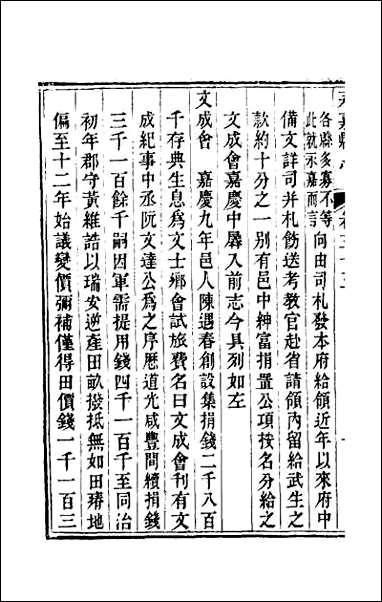 各縣多寡不等
此就永嘉而言
向由司札發本府給領近年以來府中
備文詳司并札飭送考教官赴省請領內留給武生之
款約十分之一別有邑中紳富捐置公項按名分給之
文成會嘉慶中屬入前志今具列如左
文成會 嘉慶九年邑人陳遇春創設集捐錢二千八百
千存典生息為文士鄉會試旅費名曰文成會刊有文
成紀事中丞阮文達公為之序歷道光咸豐間續捐錢
三千一百餘千嗣因軍需提用錢四千一百千至同治
初年郡守黃維誥以瑞安逆產田畝撥抵無如田瘠地
偏至十二年始議變價彌補僅得田價錢一千一百三